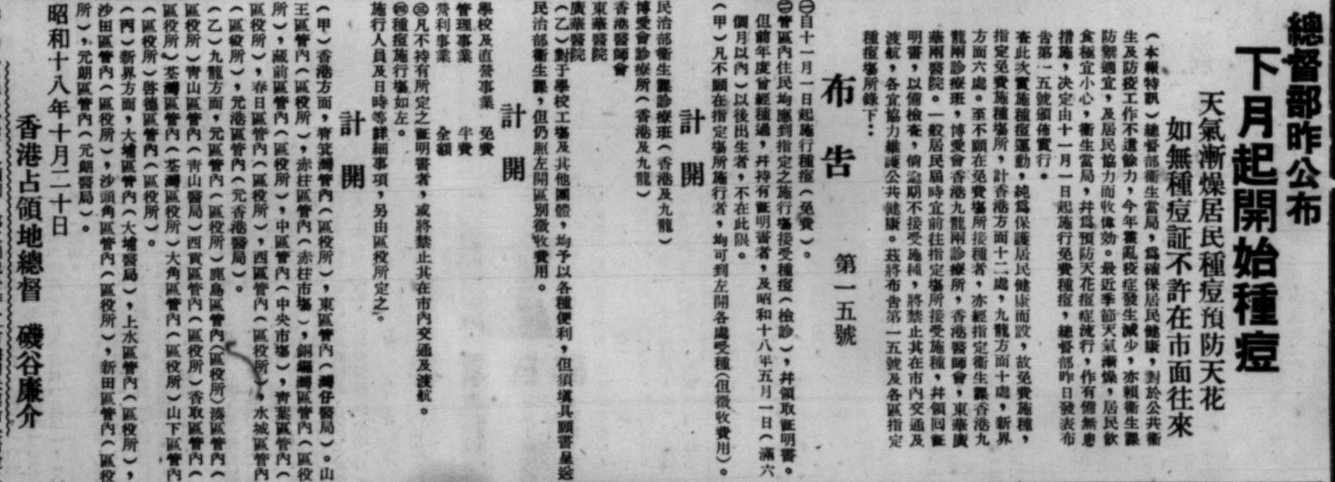 總督部昨公布
下月起開始種痘
天氣漸燥居民種痘預防天花
如無種痘証不許在市面往來
（本報特訊）總督部衛生當局，為確保居民健康，對於公共衛
生及防疫工作不遺餘力，今年霍亂疫症發生減少，亦賴衛生課
防禦適宜，及居民協力而收偉効。最近季節天氣漸燥，居民飲
食極宜小心，衛生當局，幷為預防天花痘症流行，作有備無患
措施，决定由十一月一日起施行免費種痘，總督部昨日發表布
告第一五號頒佈實行。
查此次實施種痘運動，純為保護居民健康而設，故免費施種，
指定免費施種塲所，計香港方面十二處，九龍方面十處，新界
方面六處。至不願在免費塲所接種者，亦經指定衛生課香港九
龍兩診療班，博愛會香港九龍兩診療所，香港醫師會，東華廣
華兩醫院。一般居民屆時宜前往指定塲所接受施種，幷領回証
明書，以備檢查，倘逾期不接受施種，將禁止其在市內交通及
渡航，各宜協力維護公共健康。茲將布告第一五號及各區指定
種痘塲所錄下：
布告　第一五號
㊀自十一月一日起施行種痘（免費）。
㊁管區內住民均應到指定之施行塲接受種痘（檢診），幷領取証明書。
但前年度曾經種過，幷持有証明書者，及昭和十八年五月一日（滿六
個月以內）以後出生者，不在此限。
（甲）凡不願在指定塲所施行者，均可到左開各處受種（但徵收費用）。
計開
民治部衛生課診療班（香港及九龍）
博愛會診療所（香港及九龍）
香港醫師會
東華醫院
廣華醫院
（乙）對于學校工塲及其他團體，均予以各種便利，但須塡具願書呈送
民治部衛生課，但仍照左開區別徵收費用。
計開
學校及直營事業　免費
管理事業　半費
營利事業　全額
㊂凡不持有所定之証明書者，或將禁止其在市內交通及渡航。
㊃種痘施行塲如左。
施行人員及日時等詳細事項，另由區役所定之。
計開
（甲）香港方面，筲箕灣區管內（區役所），東區管內（灣仔醫局）。山
王區管內（區役所），赤柱區管內（赤柱市塲），銅鑼灣區管內（區役
所），藏前區管內（區役所），中區管內（中央市塲），青葉區管內（
區役所），春日區管內（區役所），西區管內（區役所），水城區管內
（區役所），元港區管內（元香港醫局）。
（乙）九龍方面，元區管內（區役所），鹿島區管內（區役所）湊區管內（
區役所）青山區管內（青山醫局）西貢區管內（區役所）香取區管內（
區役所）荃灣區管內（荃灣區役所）大角區管內（區役所）山下區管內
（區役所）啓德區管內（區役所）。
（丙）新界方面，大埔區管內（大埔醫局），上水區管內（區役所），
沙田區管內（區役所），沙頭角區管內（區役所），新田區管內（區役
所），元朗區管內（元朗醫局）。
昭和十八年十月二十日
香港占領地總督　磯谷廉介